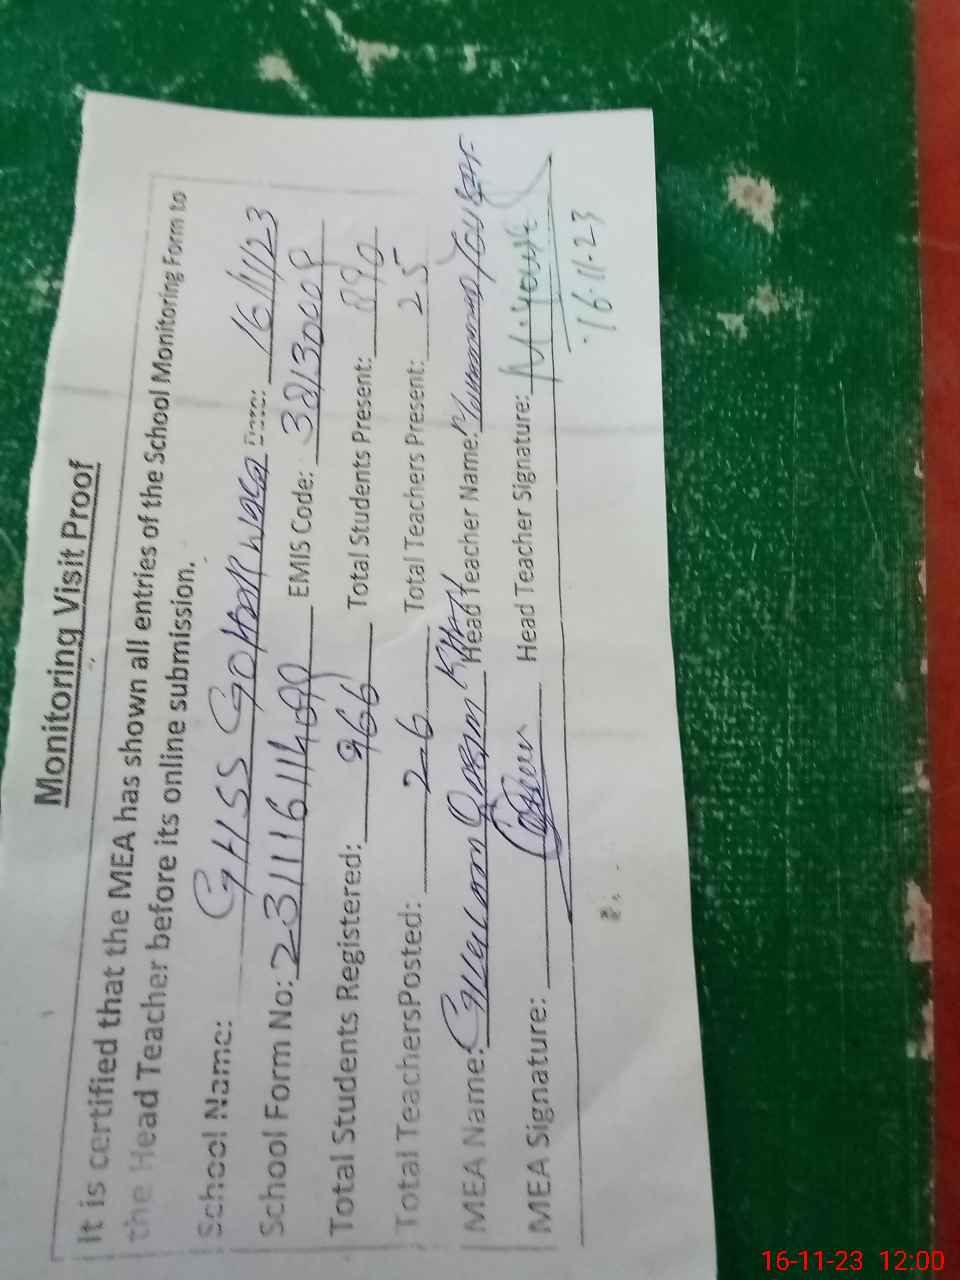 Monitoring Visit Proof
It is certified that the MEA has shown all entries of the School Monitoring Form to
the Head Teacher before its online submission.
School Name: GHSS Date: 16/11/23
School Form No: EMIS Code:
Total Students Registered: 966 Total Students Present: 890
Total TeachersPosted: 26 Total Teachers Present: 25
MEA Name: Ghulam Qasim Khan Head Teacher Name: Muhammad
MEA Signature: Head Teacher Signature: M.Yousaf
16.11.23
16-11-23 12:00